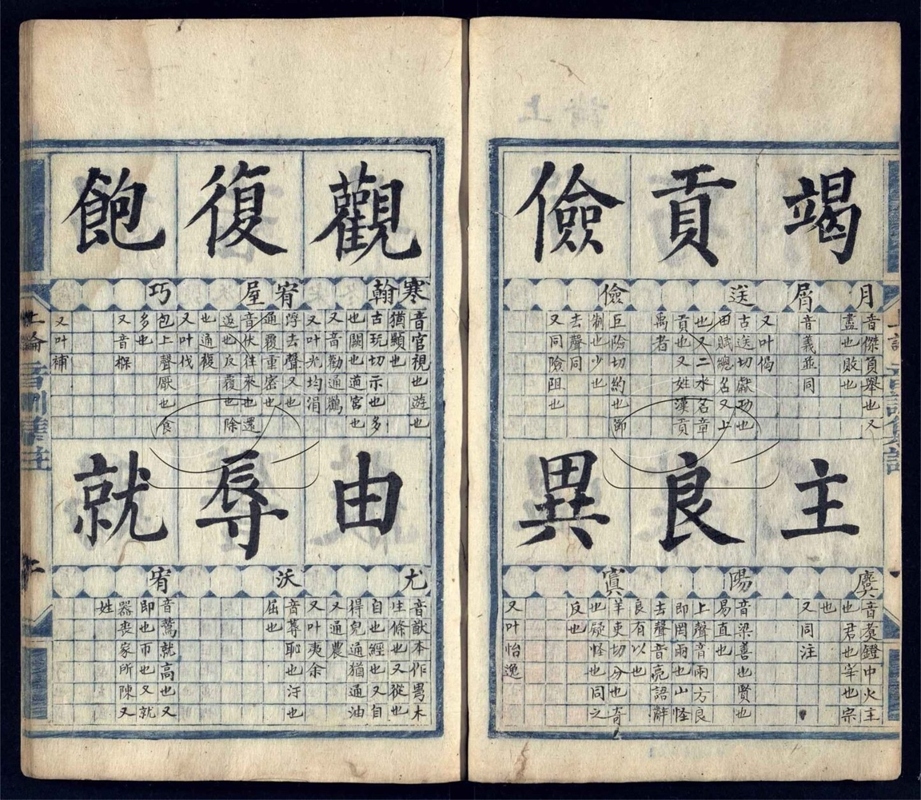 竭
貢
儉
月
屑
送
儉
音傑負舉也又
盡也敗也
音義並同
又叶偈
古送切獻功也
田賦總名又上
也又二水名章
貢也又姓漢貢
禹者
巨險切約也節
制也少也
去聲同
又同險阻也
主
良
異
麌
陽
寘
也君也宰也宗
也
又同注
音梁善也賢也
易直也
上聲音兩方良
即罔兩也山怪
去聲音亮語辭
良有以也
羊吏切分也奇
也疑怪也同之
反也
又叶怡逸
觀
復
飽
寒
翰
宥
屋
巧
音官視也遊也
猶顯也
古玩切示也多
也闕也道宮也
又音勸通鸛
又叶光均涓
浮去聲又也
通覆重密也
音伏往來也還
返也反覆也除
也通複
又叶伐
包上聲厭也食
多也
又音
又叶補
由
辱
就
尤
沃
宥
音猷本作甹木
生條也又從也
自也經也又自
得皃通猶通油
又通農
又叶夷余
音蓐恥也汙也
屈也
音鷲就高也又
即也帀也又就
器喪家所陳又
姓
上論音訓集註